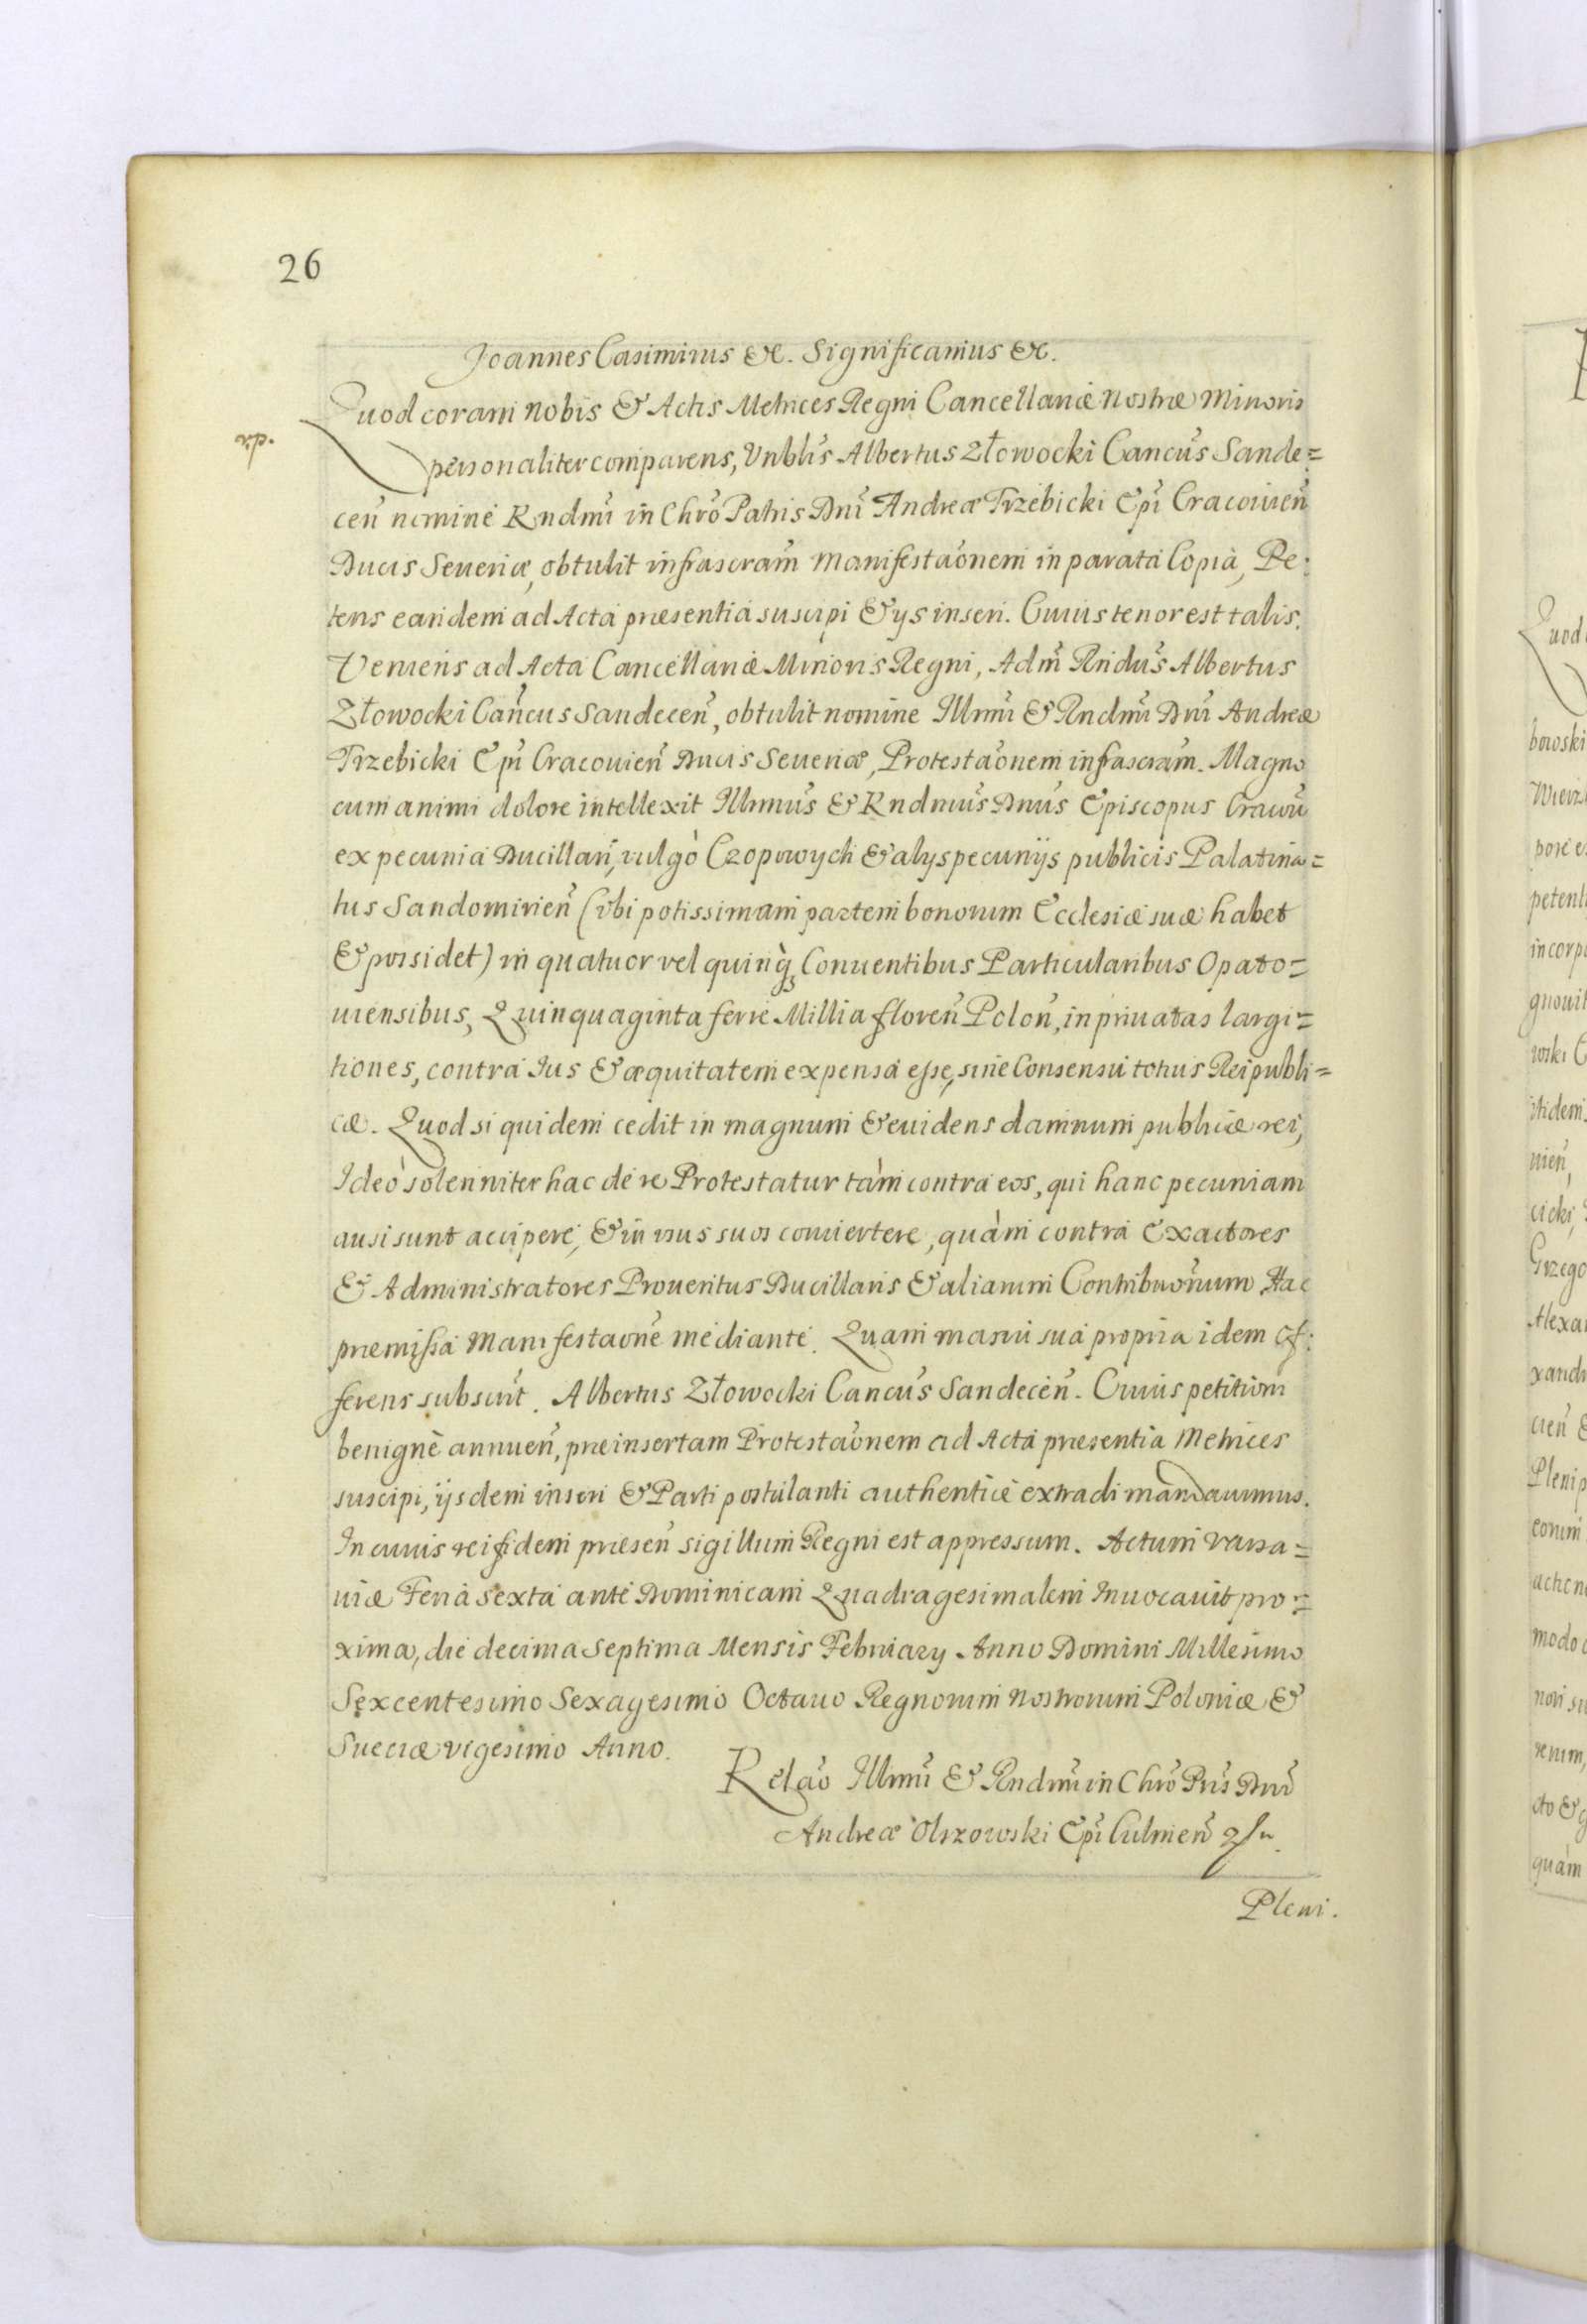 26
Joannes Casimirus &c. Significamus &c.
Quod coram nobis & Actis Metrices Regni Cancellariæ Nostræ Minoris
personaliter comparens, Vnblis Albertus Złowocki Cancus Sande=
cen̄ nomine Rndmi in Chro Patris Dni Andreæ Trzebicki Epi Cracouien̄
Ducis Seueriæ, obtulit infrascram̄ Manifestaōnem in parata Copia, Pe:
tens eandem ad Acta præsentia suscipi & ys inseri. Cuius tenor est talis.
Veniens ad Acta Cancellariæ Minoris Regni, Adm̄ Rndus Albertus
Złowocki Can̄cus Sandecen̄, obtulit nomine Illmi & Rndmi Dni Andreæ
Trzebicki Epi Cracouien̄ Ducis Seueriæ, Protestaōnem infrascram̄. Magno
cum animi dolore intellexit Illmus & Rndmus Dnus Episcopus Cracou̅
ex pecunia Ducillari, vulgò Czopowych & alys pecunijs publicis Palatina=
tus Sandomirien̄ (vbi potissimam partem bonorum Ecclesiæ suæ habet
& possidet) in quatuor vel quinq; Conuentibus Particularibus Opato=
uiensibus, Quinquaginta ferre Millia floren̄ Polon̄, in priuatas largi=
tiones, contra Ius & æquitatem expensa esse, sine Consensu totius Reipubli=
cæ. Quod siquidem cedit in magnum & euidens damnum publicæ rei,
Ideò solenniter hac de re Protestatur tàm contra eos, qui hanc pecuniam
ausi sunt accipere, & in vsus suos conuertere, quàm contra Exactores
& Administratores Prouentus Ducillaris & aliarum Contribuōnum Hac
præmissa Manifestaōne mediante. Quam manu sua propria idem Of:
ferens subscrit. Albertus Złowocki Cancus Sandecen̄. Cuius petitioni
benignè annuen̄, præinsertam Protestaōnem ad Acta præsentia Metrices
suscipi, ijsdem inseri & Parti postulanti authenticè extradi mandauimus.
In cuius rei fidem præsen̄ sigillum Regni est appressum. Actum Varsa=
uiæ Feria sexta ante Dominicam Quadragesimalem Inuocauit pro=
xima, die decima Septima Mensis February Anno Domini Millesimo
Sexcentesimo Sexagesimo Octauo Regnorum Nostrorum Poloniæ &
Sueciæ vigesimo Anno.
Relaō Illmi & Rndmi in Chro Pris Dni
Andreæ Olszowski Epi Culmen̄
Pleni.